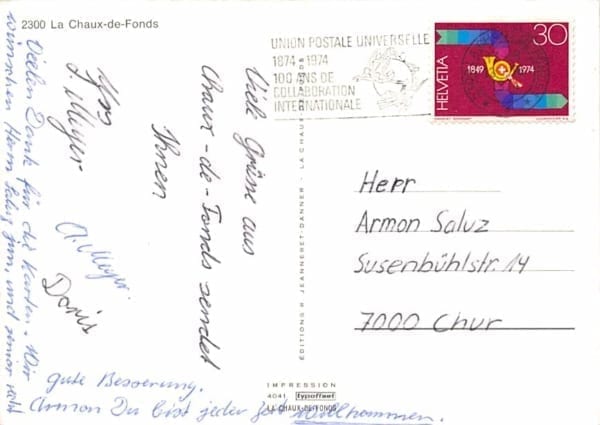 2300 La Chaux-de-Fonds
UNION POSTALE UNIVERSELLE
1874-1974
100 ANS DE
COLLABORATION
INTERNATIONALE
30
HELVETIA
1849 1974
Viele Grüsse aus
Chaux-de-Fonds sendet
Ihnen
Yvs
Meyer
A. Meyer
Doris
Vielen Dank für die Karten. Wir
wünschen Herrn Saluz jun. und senior recht
gute Besserung.
Armon Du bist jeder Zeit Willkommen.
Herr
Armon Saluz
Susenbühlstr. 14
7000 Chur
EDITIONS R. JEANNERET-DANNER - LA CHAUX-DE-FONDS
IMPRESSION
4041 typoffset
LA CHAUX-DE-FONDS